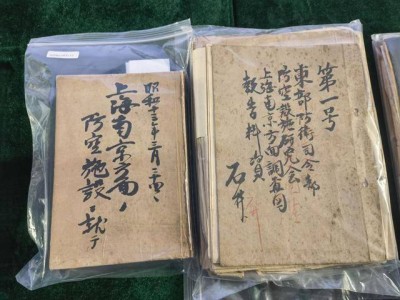 昭和十三年三月
上海南京方面ノ
防空施設ニ就テ
第一号
東部防衛司令部
防空施設研究会
上海南京方面調査団
報告
石井